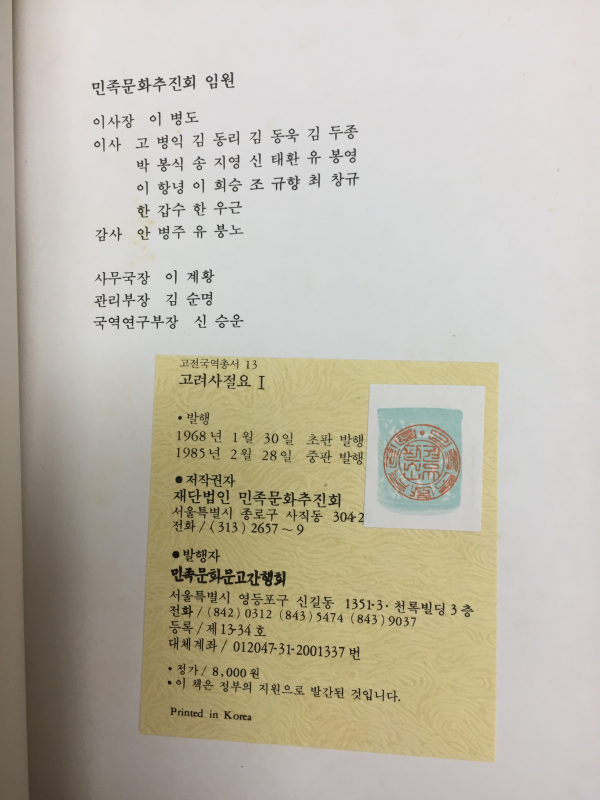 민족문화추진회 임원
이사장 이 병도
이사 고 병익 김 동리 김 동욱 김 두종
박 봉식 송 지영 신 태환 유 봉영
이 항녕 이 희승 조 규향 최 창규
한 갑수 한 우근
감사 안 병주 유 붕노
사무국장 이 계황
관리부장 김 순명
국역연구부장 신 승운
고전국역총서 13
고려사절요 I
• 발행
1968년 1월 30일 초판 발행
1985년 2월 28일 중판 발행
● 저작권자
재단법인 민족문화추진회
서울특별시 종로구 사직동 304-2
전화/(313) 2657~9
● 발행자
민족문화문고간행회
서울특별시 영등포구 신길동 1351-3·천록빌딩 3층
전화/(842) 0312 (843) 5474 (843) 9037
등록/제13-34호
대체계좌/012047-31-2001337번
• 정가/8,000원
• 이 책은 정부의 지원으로 발간된 것입니다.
Printed in Korea